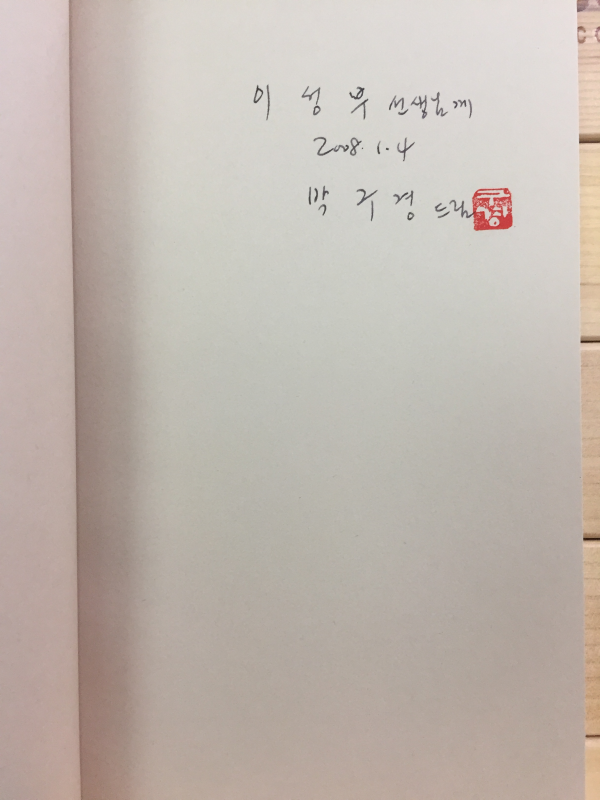 이 성 우 선생님께
2008. 1. 4
박 구 경 드림
구경